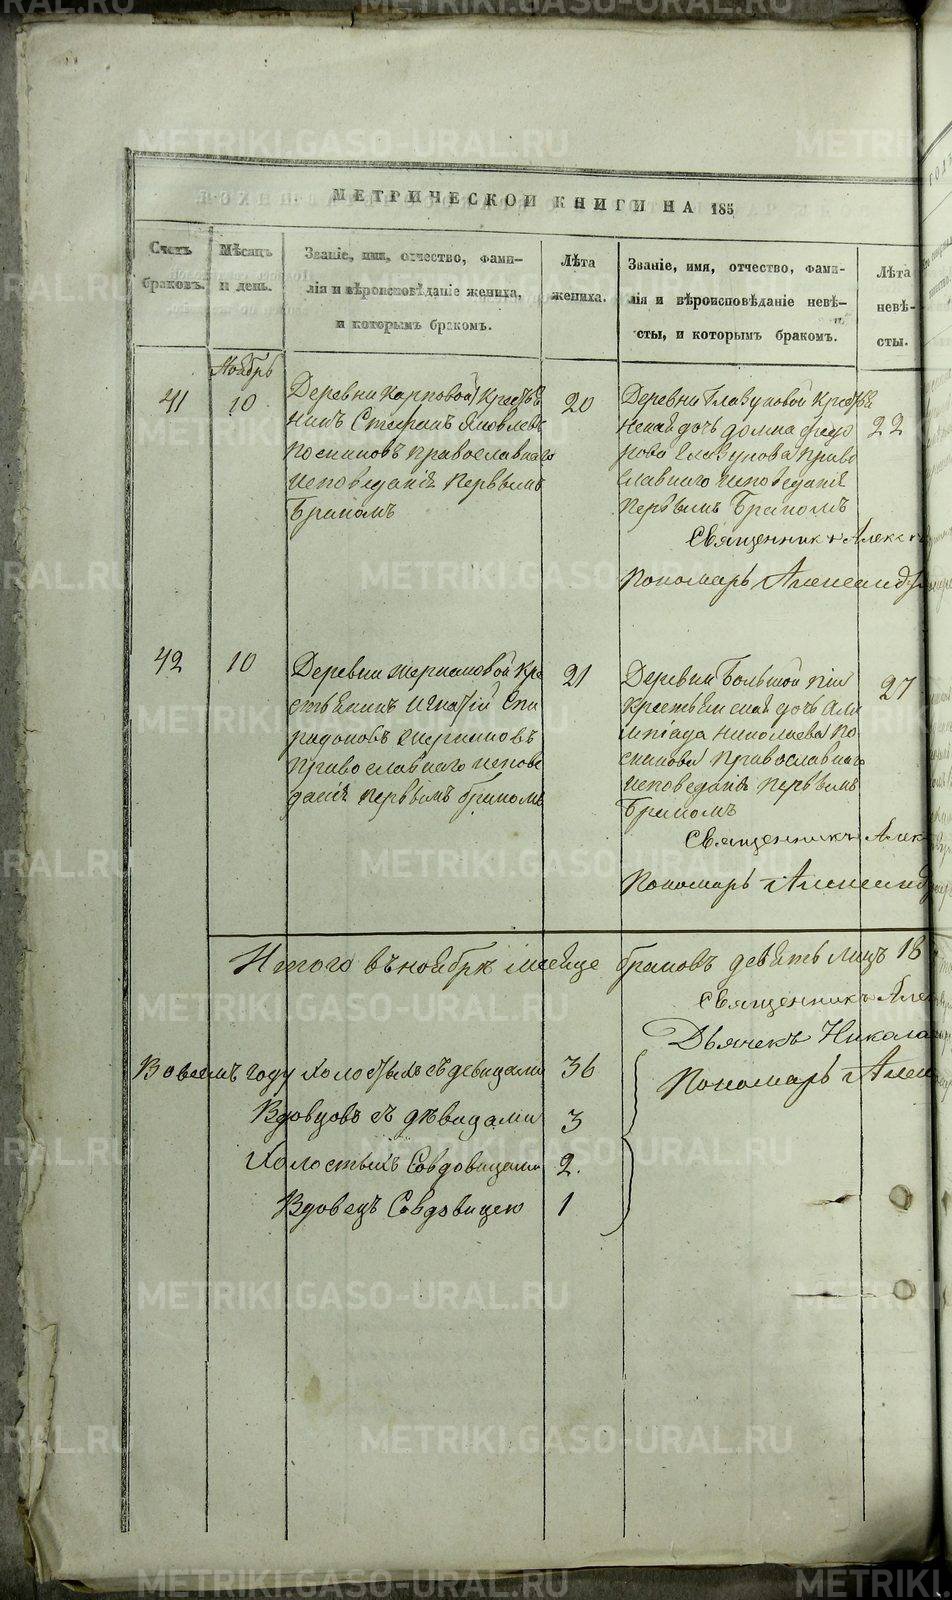 МЕТРИЧЕСКОЙ КНИГИ НА 185
Счетъ браковъ.
Мѣсяцъ и день.
Званіе, имя, отчество, фами-
лія и вѣроисповѣданіе жениха,
и которымъ бракомъ.
Лѣта
жениха.
Званіе, имя, отчество, фами-
лія и вѣроисповѣданіе невѣ-
сты, и которымъ бракомъ.
Лѣта
невѣ-
сты.
Ноябрь
41
10
Деревни Карповой Кресть
нинъ Стефанъ Яковлевъ
Поскиновъ Православнаго
исповеданія Первымъ
Бракомъ
20
Деревни Глазуновой Кресть
нская дочь Домна Федо
рова Глазунова Право
славнаго исповеданія
Первымъ Бракомъ
22
Священникъ Алекс
Пономарь Александр
42
10
Деревни Кре
стьянинъ Игнатій Спи
ридоновъ
Православнаго испове
данія первымъ бракомъ
21
Деревни Большой
Крестьянская дочь Оли
мпіада Николаева По
скинова Православнаго
исповеданія Первымъ
Бракомъ
27
Священникъ Алек
Пономарь Александ
Итого въ ноябрѣ месяце браковъ девять лицъ 18
Священникъ Але
Дьячекъ Никола
Пономарь Алек
Во всемъ году холостыхъ съ девицами 36
Вдовцовъ съ дѣвицами 3
Холостыхъ Совдовицами 2.
Вдовецъ Совдовицею 1
METRIKI.GASO-URAL.RU